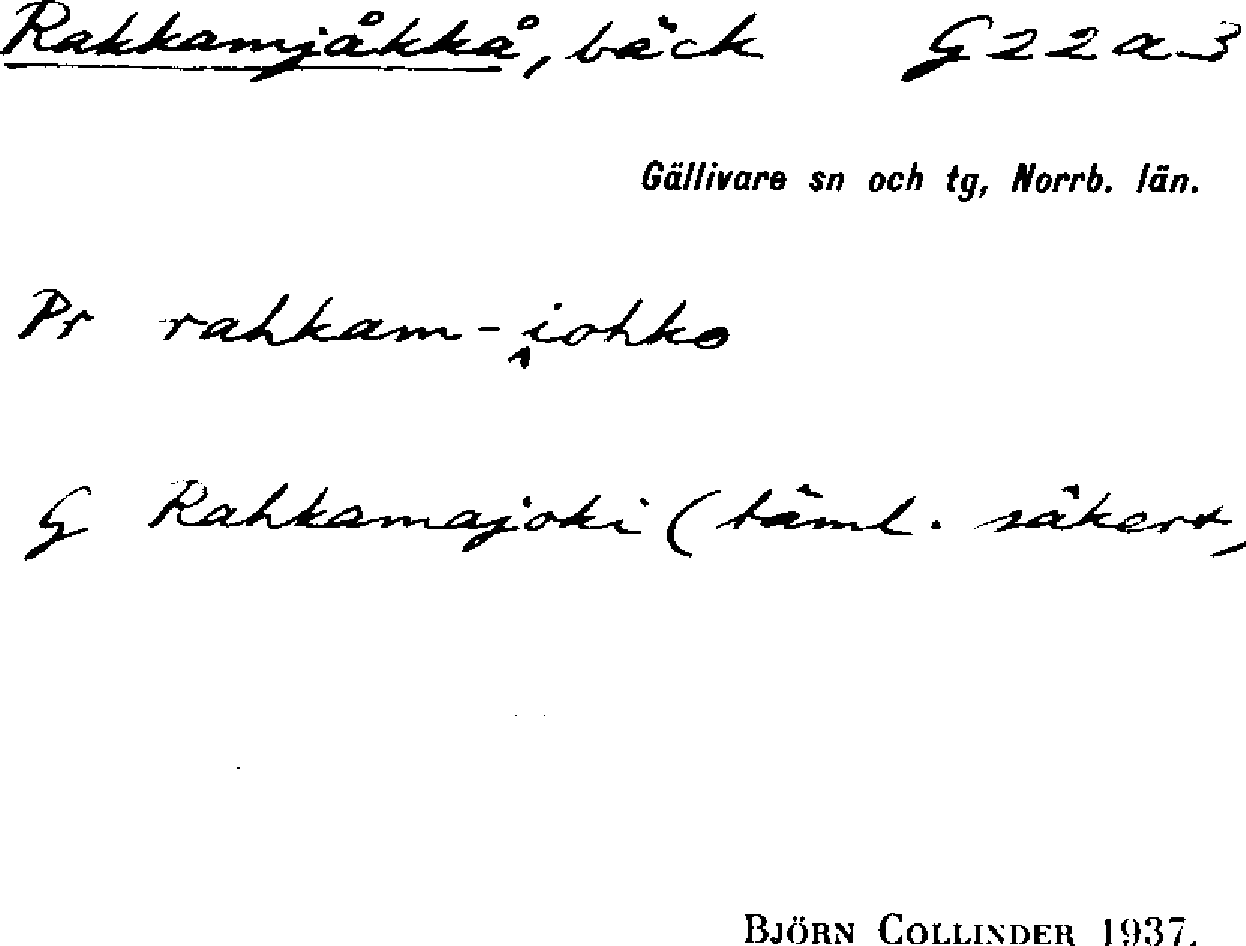 Rakkamjåkkå, bäck G22a3
Gällivare sn och tg, Norrb. län.
Pr rahkam-i̯ohko
G Rahkamajoki (täml. säkert,
BJÖRN COLLINDER 1937.